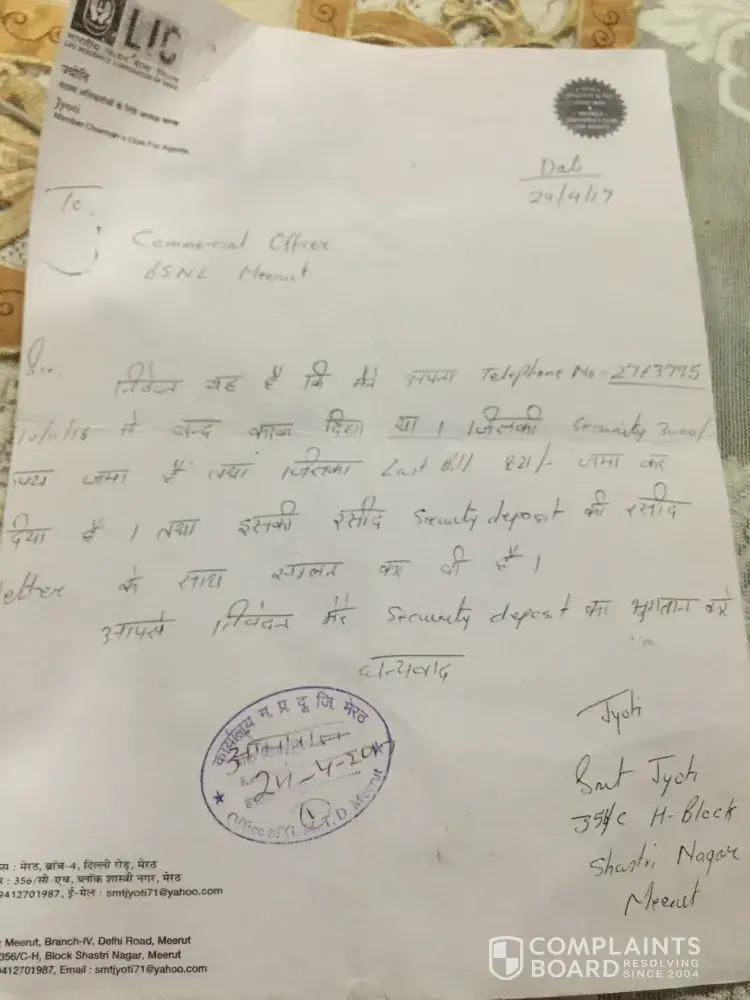 LIC
भारतीय जीवन बीमा निगम
LIFE INSURANCE CORPORATION OF INDIA
ज्योति
Jyoti
Member Chairman's Club For Agents
Date
24/4/17
To,
Commercial Officer
BSNL Meerut
निवेदन यह है कि मैने अपना Telephone No-2763795
में बन्द करवा दिया था। जिसकी Security 3000/-
जमा है तथा जिसका Last Bill 821/- जमा कर
दिया है। तथा इसकी रसीद Security deposit की रसीद
letter के साथ सलंग्न कर दी है।
आपसे निवेदन मेरे Security deposit का भुगतान करे
धन्यवाद
कार्यालय म. प्र. दू. जि. मेरठ
24-4-2017
Office of G. M. T. D. Meerut
Jyoti
Smt Jyoti
356/C H-Block
Shastri Nagar
Meerut
: मेरठ, ब्रांच-4, दिल्ली रोड़, मेरठ
: 356/सी-एच, ब्लॉक शास्त्री नगर, मेरठ
9412701987, ई-मेल : smtjyoti71@yahoo.com
: Meerut, Branch-IV, Delhi Road, Meerut
356/C-H, Block Shastri Nagar, Meerut
9412701987, Email : smtjyoti71@yahoo.com
COMPLAINTS
BOARD RESOLVING
SINCE 2004